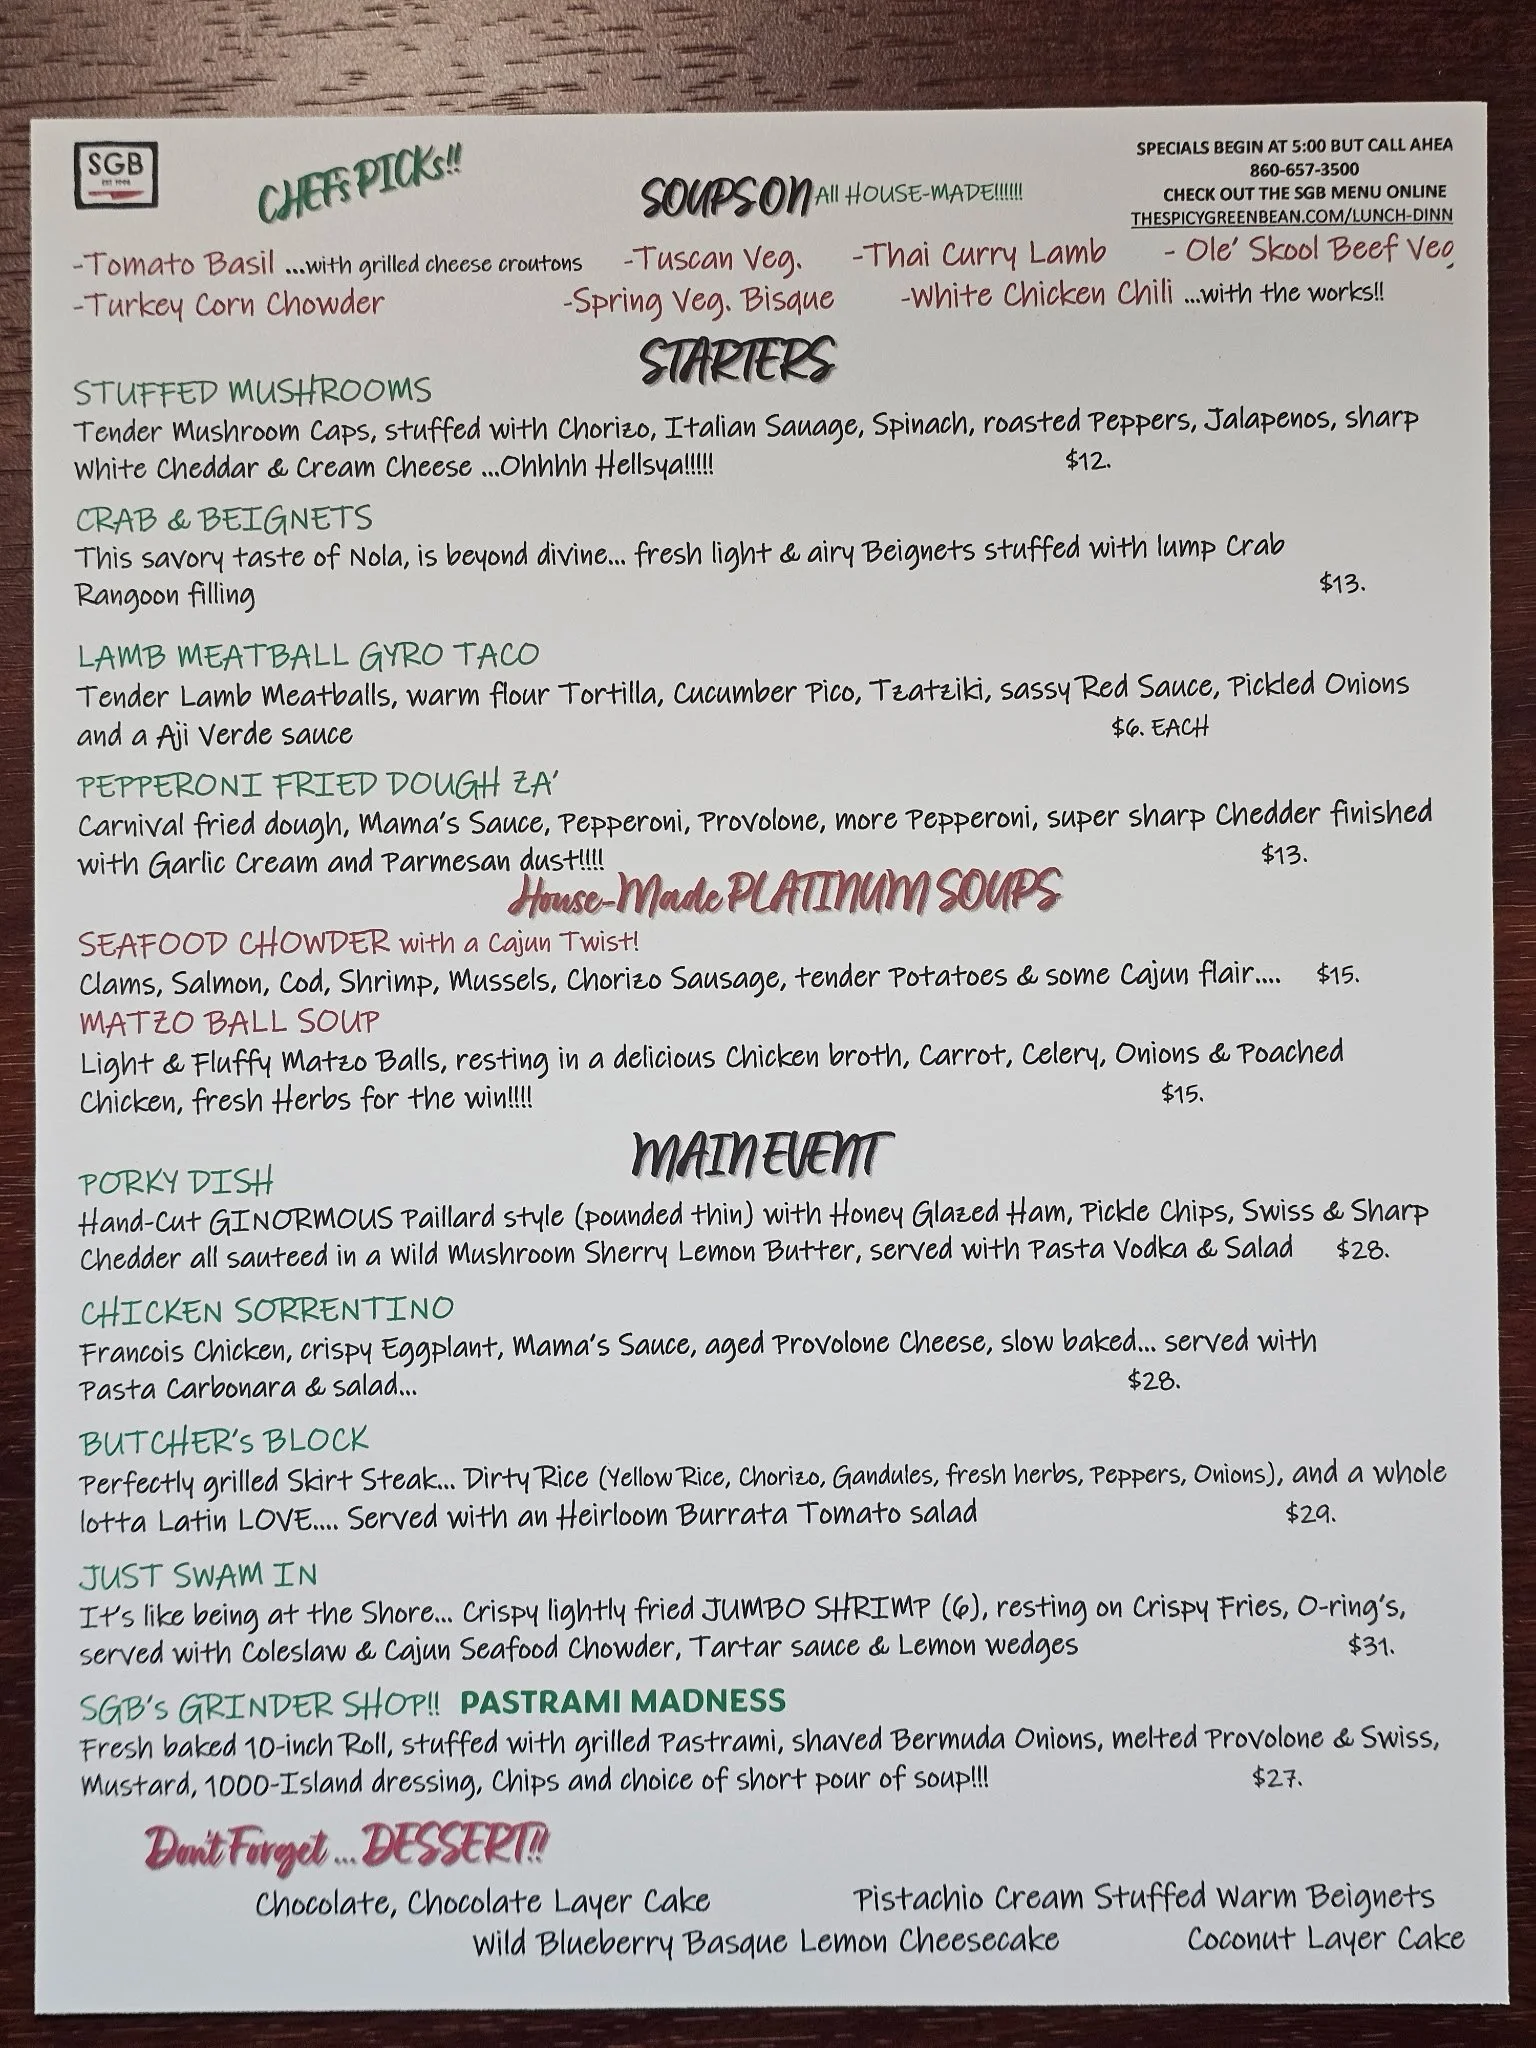 SGB
CHEFs PICKs!!
SOUPS ON All HOUSE-MADE!!!!!!
SPECIALS BEGIN AT 5:00 BUT CALL AHEA
860-657-3500
CHECK OUT THE SGB MENU ONLINE
THESPICYGREENBEAN.COM/LUNCH-DINN
-Tomato Basil ...with grilled cheese croutons -Tuscan Veg. -Thai Curry Lamb - Ole' Skool Beef Veg
-Turkey Corn Chowder -Spring Veg. Bisque -White Chicken Chili ...with the works!!
STARTERS
STUFFED MUSHROOMS
Tender Mushroom Caps, stuffed with Chorizo, Italian Sauage, Spinach, roasted Peppers, Jalapenos, sharp
White Cheddar & Cream Cheese ...Ohhhh Hellsya!!!!! $12.
CRAB & BEIGNETS
This savory taste of Nola, is beyond divine... fresh light & airy Beignets stuffed with lump Crab
Rangoon filling $13.
LAMB MEATBALL GYRO TACO
Tender Lamb Meatballs, warm flour Tortilla, Cucumber Pico, Tzatziki, sassy Red Sauce, Pickled Onions
and a Aji Verde sauce $6. EACH
PEPPERONI FRIED DOUGH ZA'
Carnival fried dough, Mama's Sauce, Pepperoni, Provolone, more Pepperoni, super sharp Chedder finished
with Garlic Cream and Parmesan dust!!!! $13.
House-Made PLATINUM SOUPS
SEAFOOD CHOWDER with a Cajun Twist!
Clams, Salmon, Cod, Shrimp, Mussels, Chorizo Sausage, tender Potatoes & some Cajun flair.... $15.
MATZO BALL SOUP
Light & Fluffy Matzo Balls, resting in a delicious Chicken broth, Carrot, Celery, Onions & Poached
Chicken, fresh Herbs for the win!!!! $15.
MAIN EVENT
PORKY DISH
Hand-Cut GINORMOUS Paillard style (pounded thin) with Honey Glazed Ham, Pickle Chips, Swiss & Sharp
Chedder all sauteed in a Wild Mushroom Sherry Lemon Butter, served with Pasta Vodka & Salad $28.
CHICKEN SORRENTINO
Francois Chicken, crispy Eggplant, Mama's Sauce, aged Provolone Cheese, slow baked... served with
Pasta Carbonara & salad... $28.
BUTCHER's BLOCK
Perfectly grilled Skirt Steak... Dirty Rice (Yellow Rice, Chorizo, Gandules, fresh herbs, Peppers, Onions), and a whole
lotta Latin LOVE.... Served with an Heirloom Burrata Tomato salad $29.
JUST SWAM IN
It's like being at the Shore... Crispy lightly fried JUMBO SHRIMP (6), resting on Crispy Fries, O-ring's,
served with Coleslaw & Cajun Seafood Chowder, Tartar sauce & Lemon wedges $31.
SGB's GRINDER SHOP!! PASTRAMI MADNESS
Fresh baked 10-inch Roll, stuffed with grilled Pastrami, shaved Bermuda Onions, melted Provolone & Swiss,
Mustard, 1000-Island dressing, Chips and choice of short pour of soup!!! $27.
Don't Forget ... DESSERT!!
Chocolate, Chocolate Layer Cake Pistachio Cream Stuffed Warm Beignets
Wild Blueberry Basque Lemon Cheesecake Coconut Layer Cake